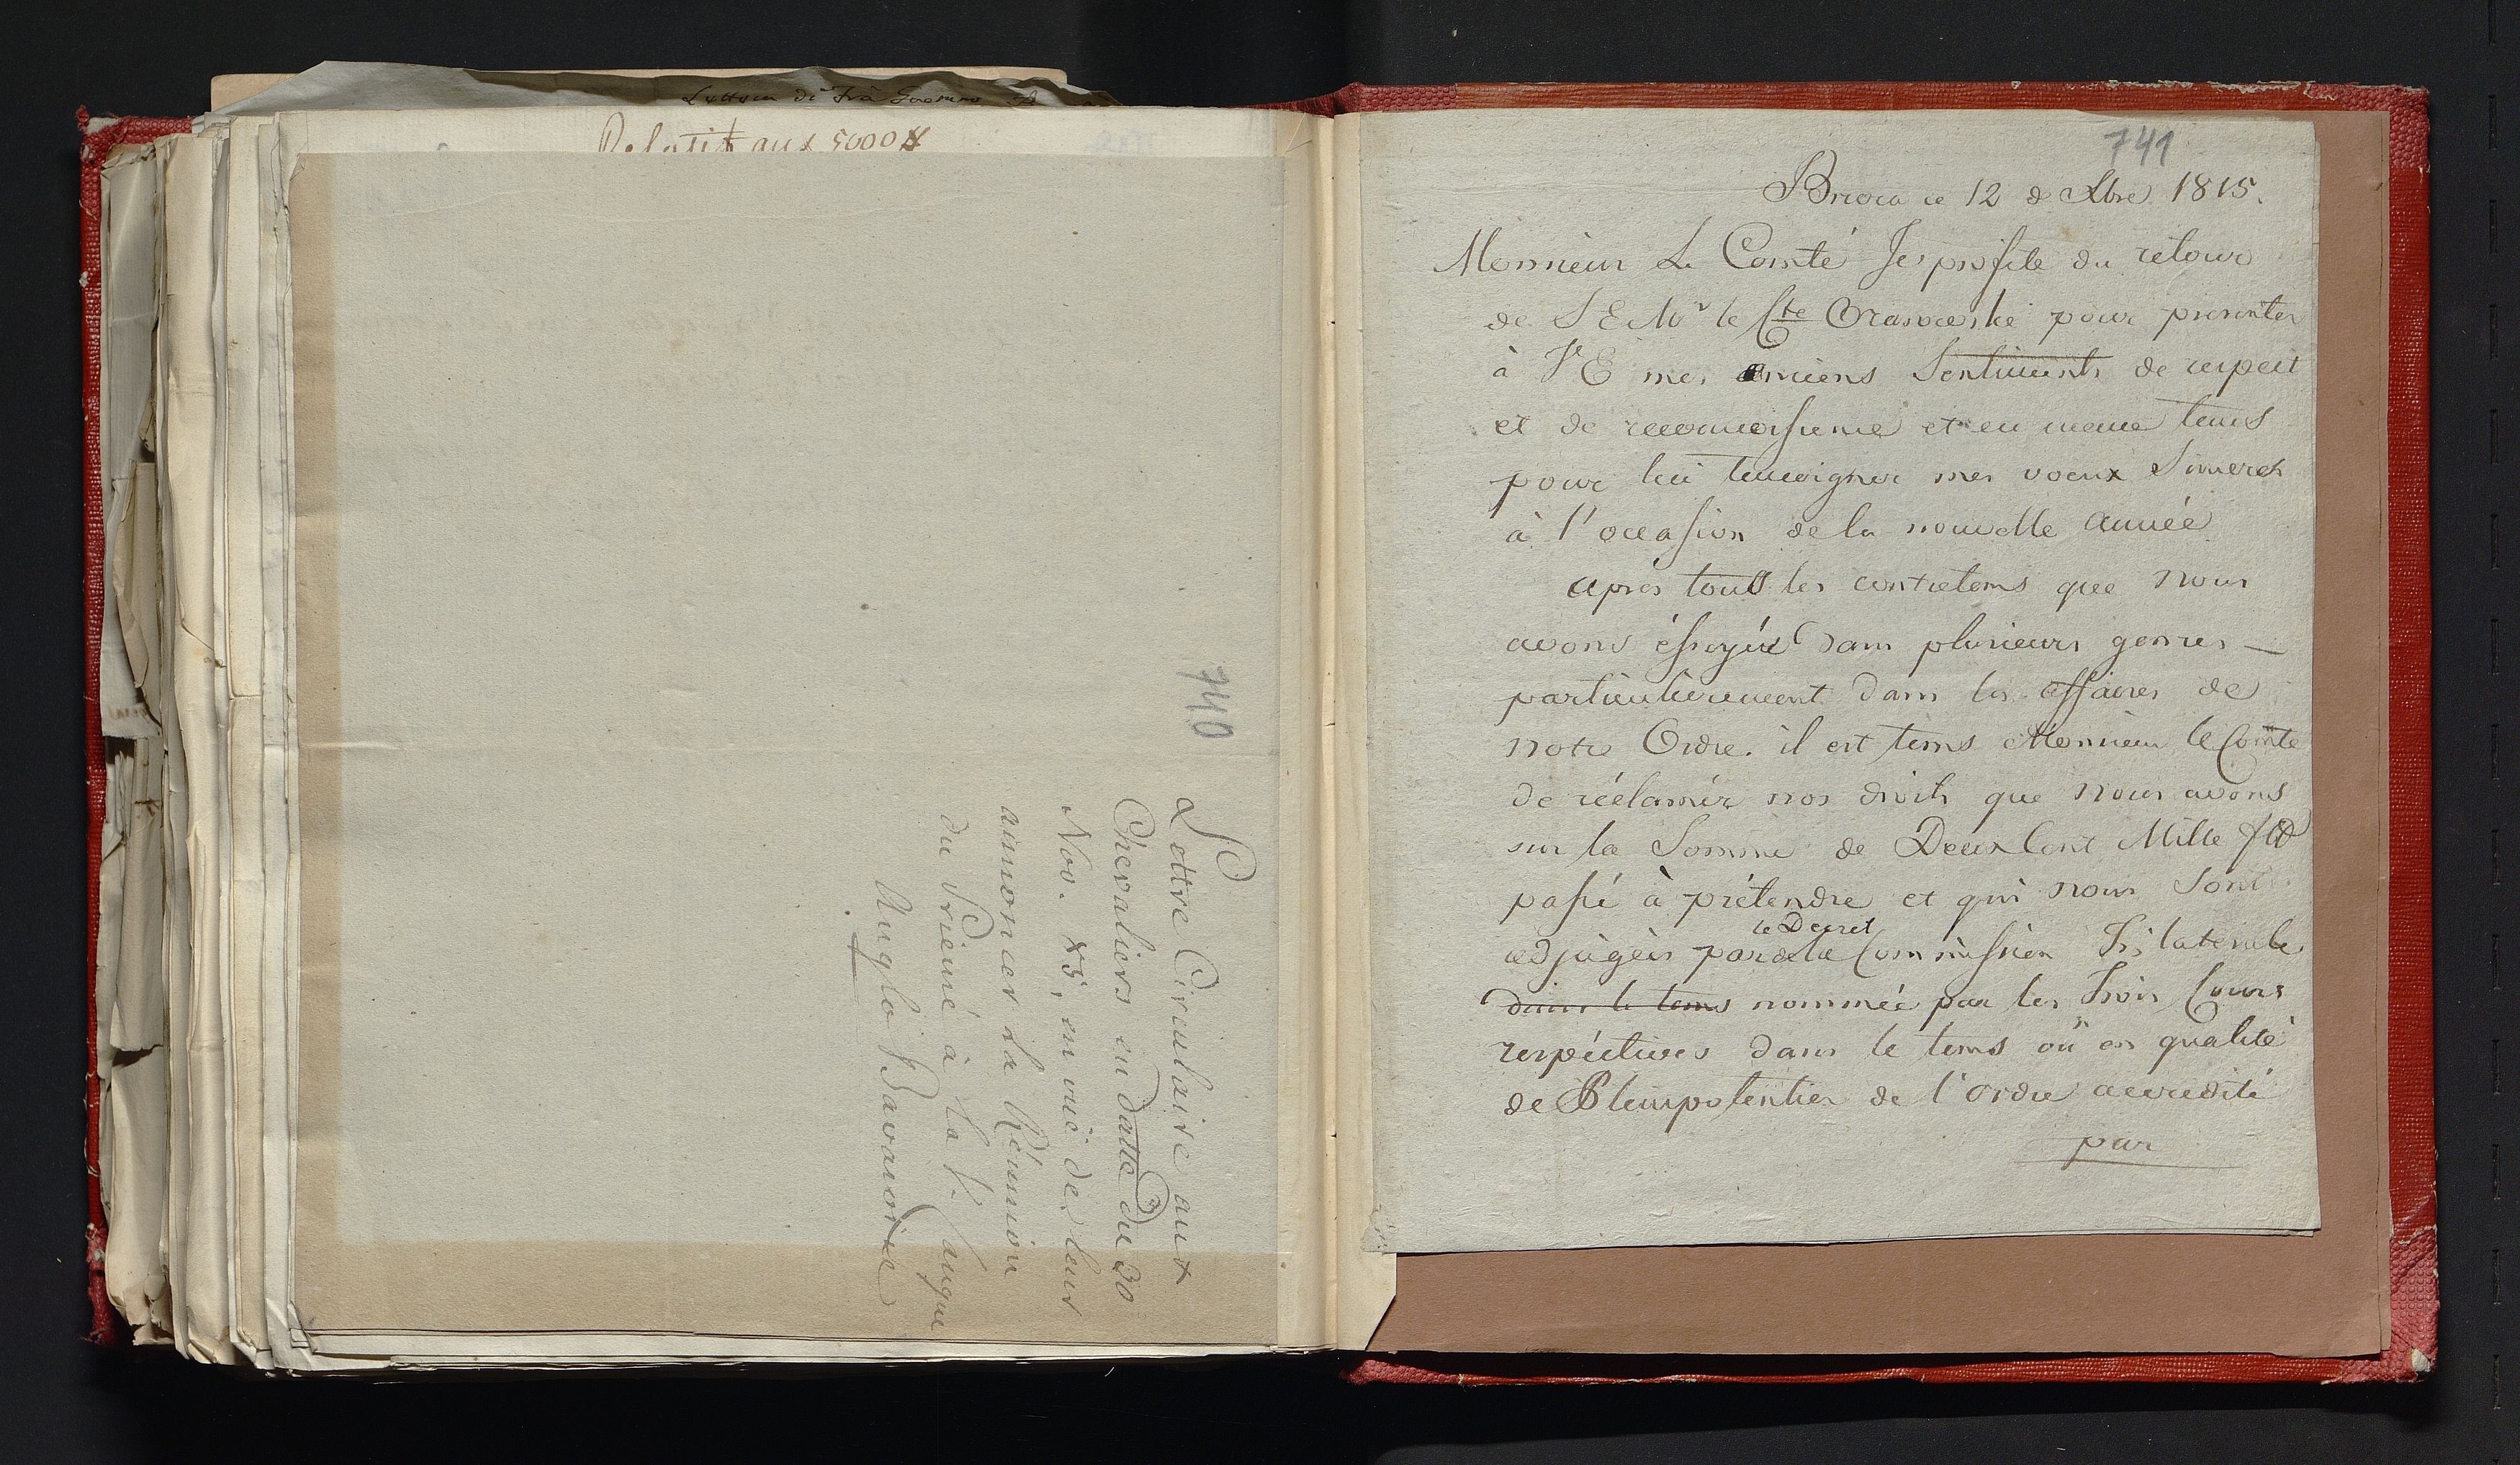 Relatif aux 5000 #
740
Lettre Circulaire aux
Chevaliers en datte du 30
Nov. XS, en vüe de leur
annoncer la Réunion
du Prieuré à la V. Langue
Anglo Bavaroise
741
ce 12 de Xbre 1815.
Monsieur Le Comté Je profite du retour
de S E Mr le Cte pour presenter
à V E mes anciens Sentiments de respect
et de reconnoissence et en meme tems
pour lui temoigner mes voeux Sinceres
à l'occasion de la nouvelle année
après tous les contretems que nous
avons éssoyés dans plusieurs genres —
particulierement dans les affaires de
notre Ordre. il est tems Monsieur le Comte
de réclamér nos droits que nous avons
sur la Somme de Deux Cent Mille fld
passé à prétendre et qui nous Sont
le Decret
adjugées par de la Commission Trilaterale
dans le tems nommée par les Trois Cours
respéctives dans le tems où en qualité
de Plenipotentier de l'ordre accredité
par